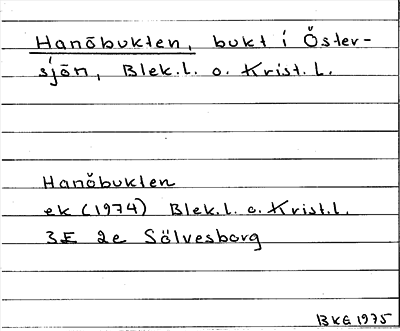 Hanöbukten, bukt i Öster-
sjön, Blek.l. o. Krist.L.
Hanöbukten
ek (1974) Blek.l. o. Krist.l.
3E 2e Sölvesborg
BKE 1975